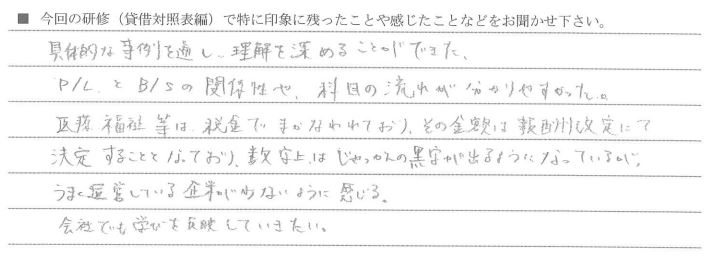 ■ 今回の研修（貸借対照表編）で特に印象に残ったことや感じたことなどをお聞かせ下さい。
具体的な事例を通し、理解を深めることができた。
P/L と B/Sの関係性や、科目の流れが分かりやすかった。
医療福祉等は、税金でまかなわれており、その金額は報酬改定にて
決定することとなっており、数字上はじゃっかんの黒字が出るようになっているが、
うまく運営している企業が少ないように感じる。
会社でも学びを反映していきたい。